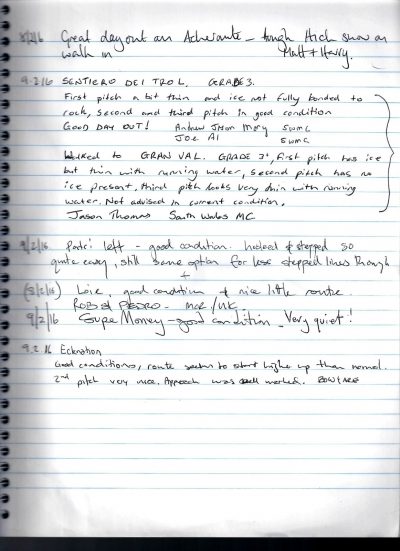 8/2/16 Great day out on Acheronte - tough thick snow on
walk in Matt + Harry.
9.2/16 SENTIERO DEI TROL. GRADE 3.
First pitch a bit thin and ice not fully bonded to
rock, second and third pitch in good condition
GOOD DAY OUT! Andrew Jason Mary SWMC
JOE Al SWMC
Walked to GRAN VAL. GRADE 3+, first pitch has ice
but thin with running water, second pitch has no
ice present, third pitch looks very thin with running
water. Not advised in current condition.
Jason Thomas South Wales MC.
9/2/16 Patri left - good condition. Hooked & stepped so
quite easy, still some option for less stepped lines though
+
(8/2/16) Loie, good condition & nice little route.
ROB & PEDRO - MCR/UK.
9/2/16 Supe Money - good condition - Very quiet!
9.2.16
Good conditions, route seems to start higher up than normal.
2nd pitch very nice. Approach was well marked.